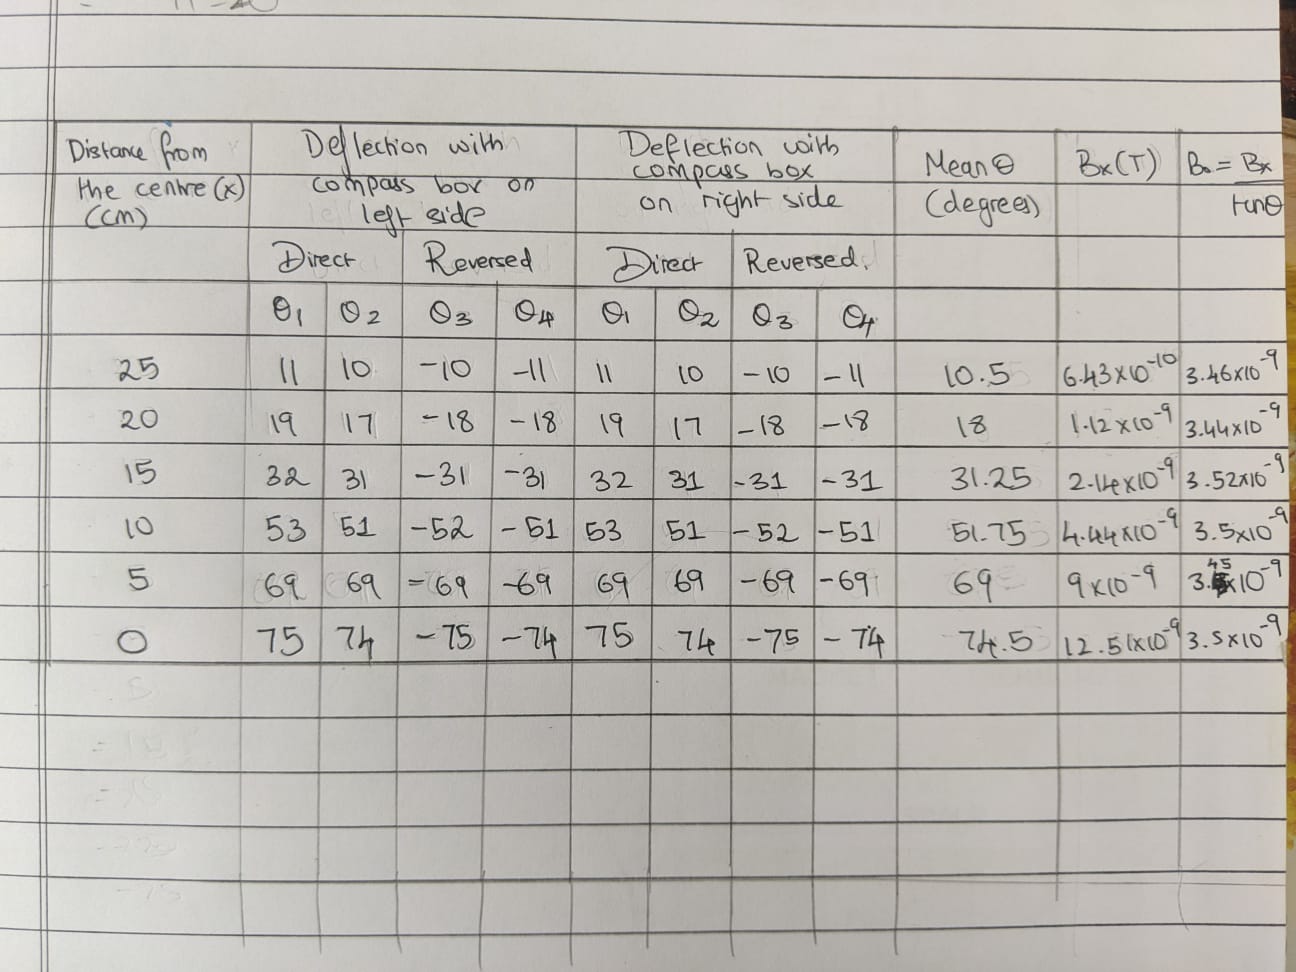 Distance from the centre (x) (cm) | Deflection with compass box on left side | Deflection with compass box on right side | Mean θ (degrees) | Bx (T) | B₀ = Bx / tanθ
Direct | Reversed | Direct | Reversed.
θ1 | θ2 | θ3 | θ4 | θ1 | θ2 | θ3 | θ4
25 | 11 | 10 | -10 | -11 | 11 | 10 | -10 | -11 | 10.5 | 6.43×10⁻¹⁰ | 3.46×10⁻⁹
20 | 19 | 17 | -18 | -18 | 19 | 17 | -18 | -18 | 18 | 1.12×10⁻⁹ | 3.44×10⁻⁹
15 | 32 | 31 | -31 | -31 | 32 | 31 | -31 | -31 | 31.25 | 2.14×10⁻⁹ | 3.52×10⁻⁹
10 | 53 | 51 | -52 | -51 | 53 | 51 | -52 | -51 | 51.75 | 4.44×10⁻⁹ | 3.5×10⁻⁹
5 | 69 | 69 | -69 | -69 | 69 | 69 | -69 | -69 | 69 | 9×10⁻⁹ | 3.45×10⁻⁹
0 | 75 | 74 | -75 | -74 | 75 | 74 | -75 | -74 | 74.5 | 12.51×10⁻⁹ | 3.5×10⁻⁹